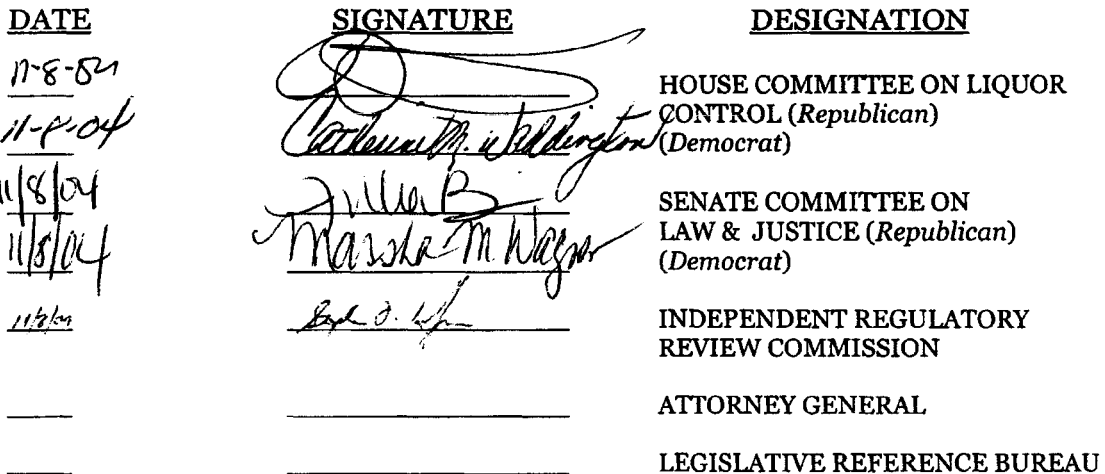 DATE SIGNATURE DESIGNATION
11-8-04 HOUSE COMMITTEE ON LIQUOR
CONTROL (Republican)
11-8-04 Catherine M. Waddington (Democrat)
11/8/04 SENATE COMMITTEE ON
LAW & JUSTICE (Republican)
11/8/04 Marsha M. Wagner (Democrat)
INDEPENDENT REGULATORY
REVIEW COMMISSION
ATTORNEY GENERAL
LEGISLATIVE REFERENCE BUREAU